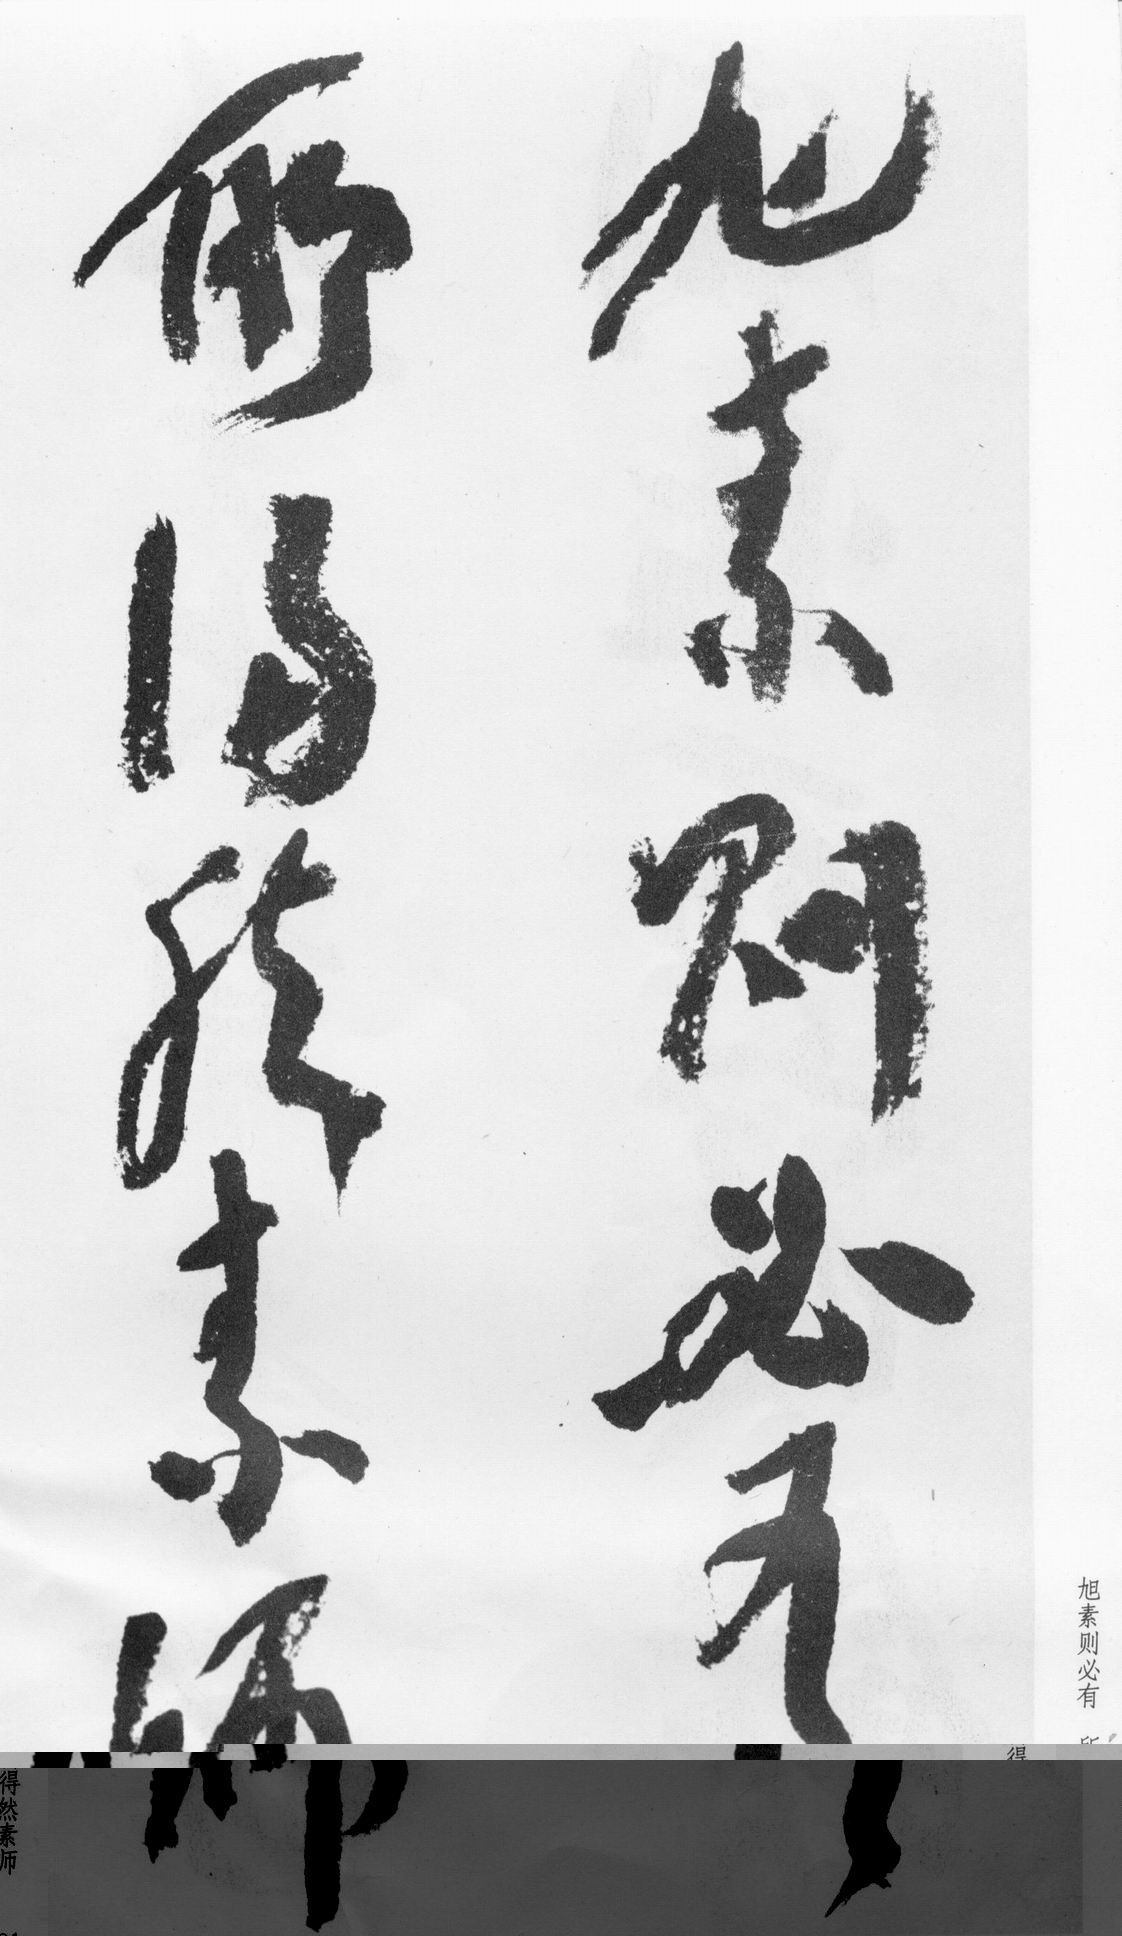 旭素则必有
所得然素师
旭素则必有 所
得
得然素师